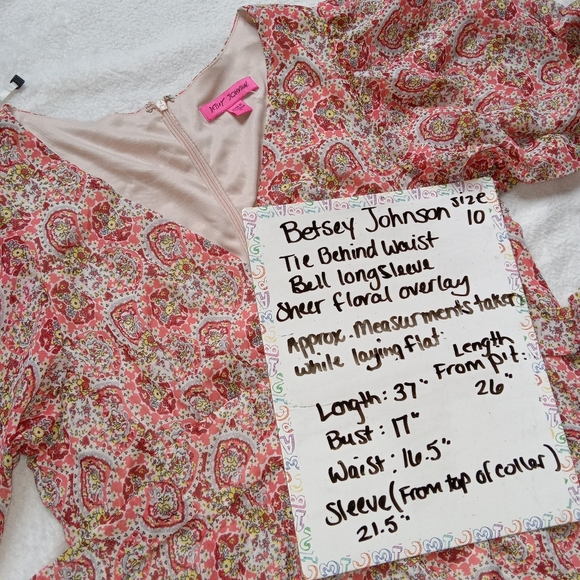 BETSEY JOHNSON
Betsey Johnson size
10
Tie Behind Waist
Bell longsleeve
Sheer floral overlay
Approx. Measurments taken
while laying flat.
Length: 37"
Bust: 17"
Waist: 16.5"
Sleeve (From top of collar)
21.5"
Length
From pit:
26"